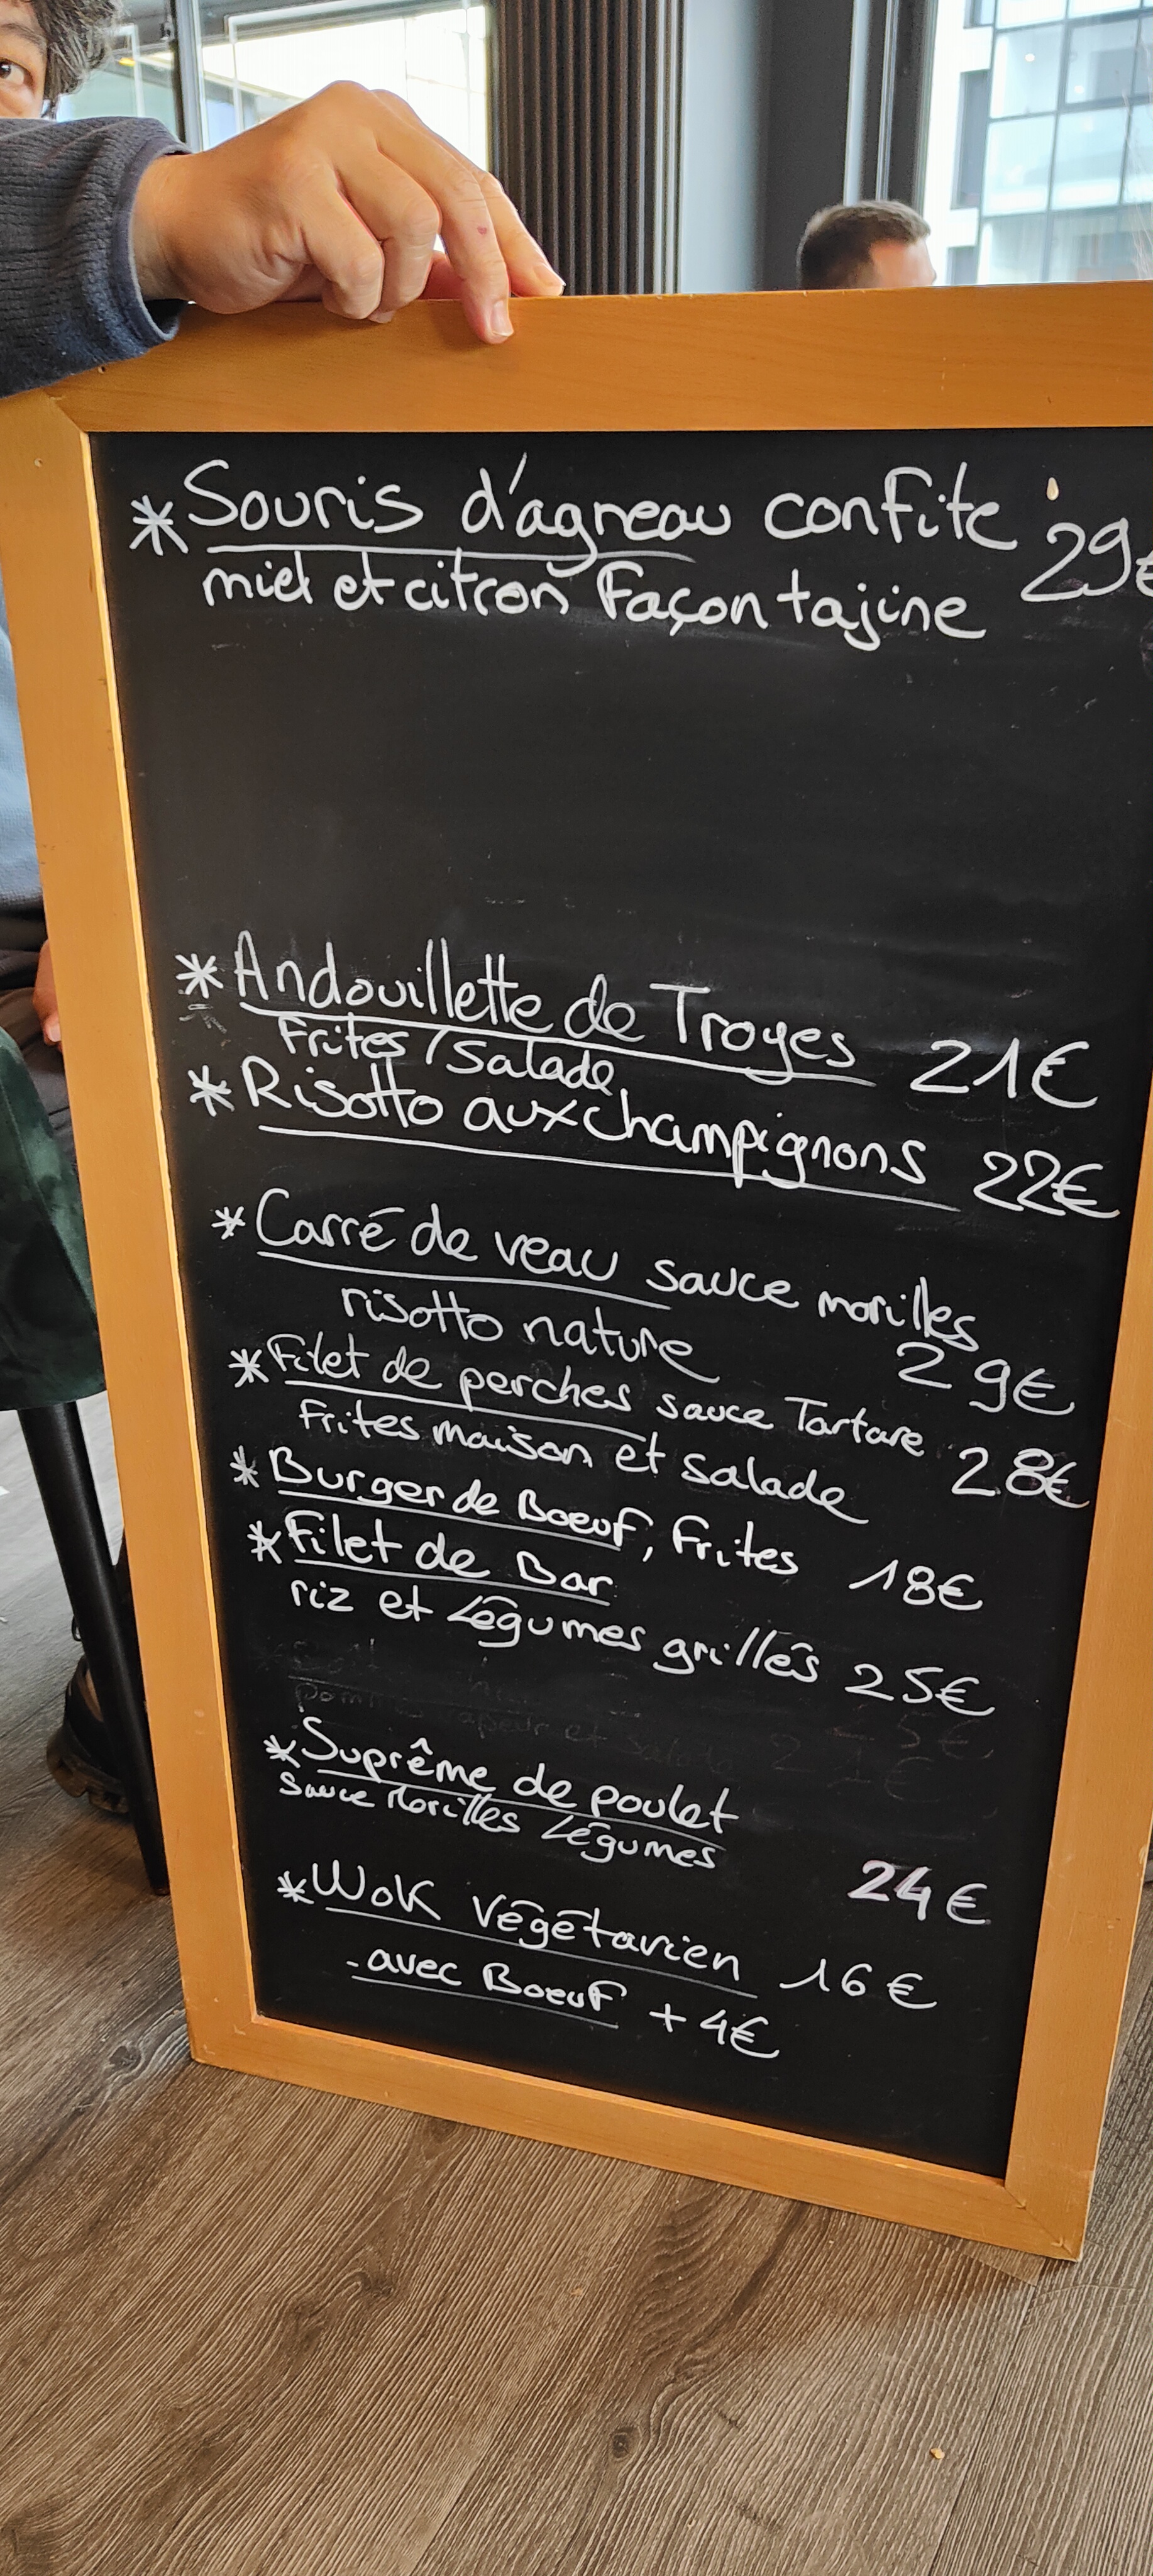 * Souris d'agneau confite 29€
miel et citron façon tajine
* Andouillette de Troyes 21€
Frites / Salade
* Risotto aux champignons 22€
* Carré de veau sauce morilles
risotto nature 29€
* Filet de perches sauce Tartare
Frites maison et salade 28€
* Burger de Boeuf, Frites 18€
* Filet de Bar
riz et Légumes grillés 25€
* Suprême de poulet
Sauce Morilles Légumes
24€
* Wok Végétarien 16€
- avec Boeuf + 4€